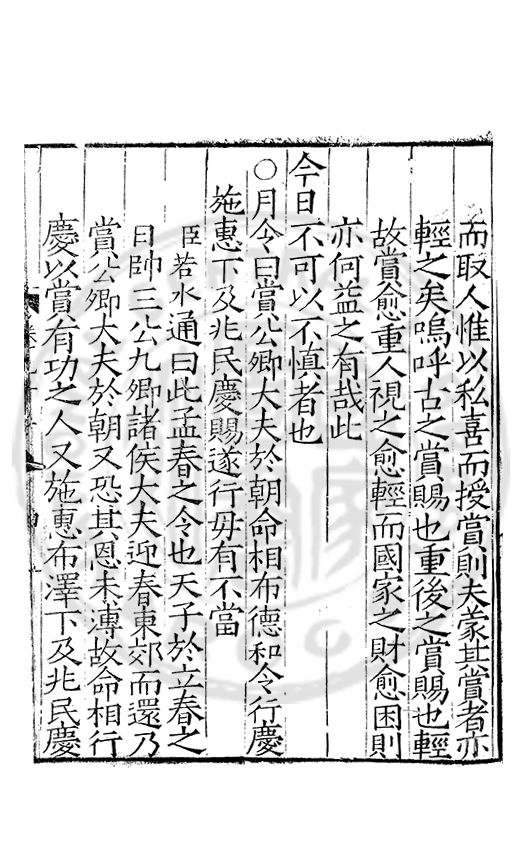 而取人惟以私喜而授賞則夫蒙其賞者亦
輕之矣嗚呼古之賞賜也重後之賞賜也輕
故賞愈重人視之愈輕而國家之財愈困則
亦何益之有哉此
今日不可以不慎者也
○月令曰賞公卿大夫於朝命相布德和令行慶
施惠下及兆民慶賜遂行毋有不當
臣若水通曰此孟春之令也天子於立春之
日帥三公九卿諸侯大夫迎春東郊而還乃
賞公卿大夫於朝又恐其恩未溥故命相行
慶以賞有功之人又施惠布澤下及兆民慶